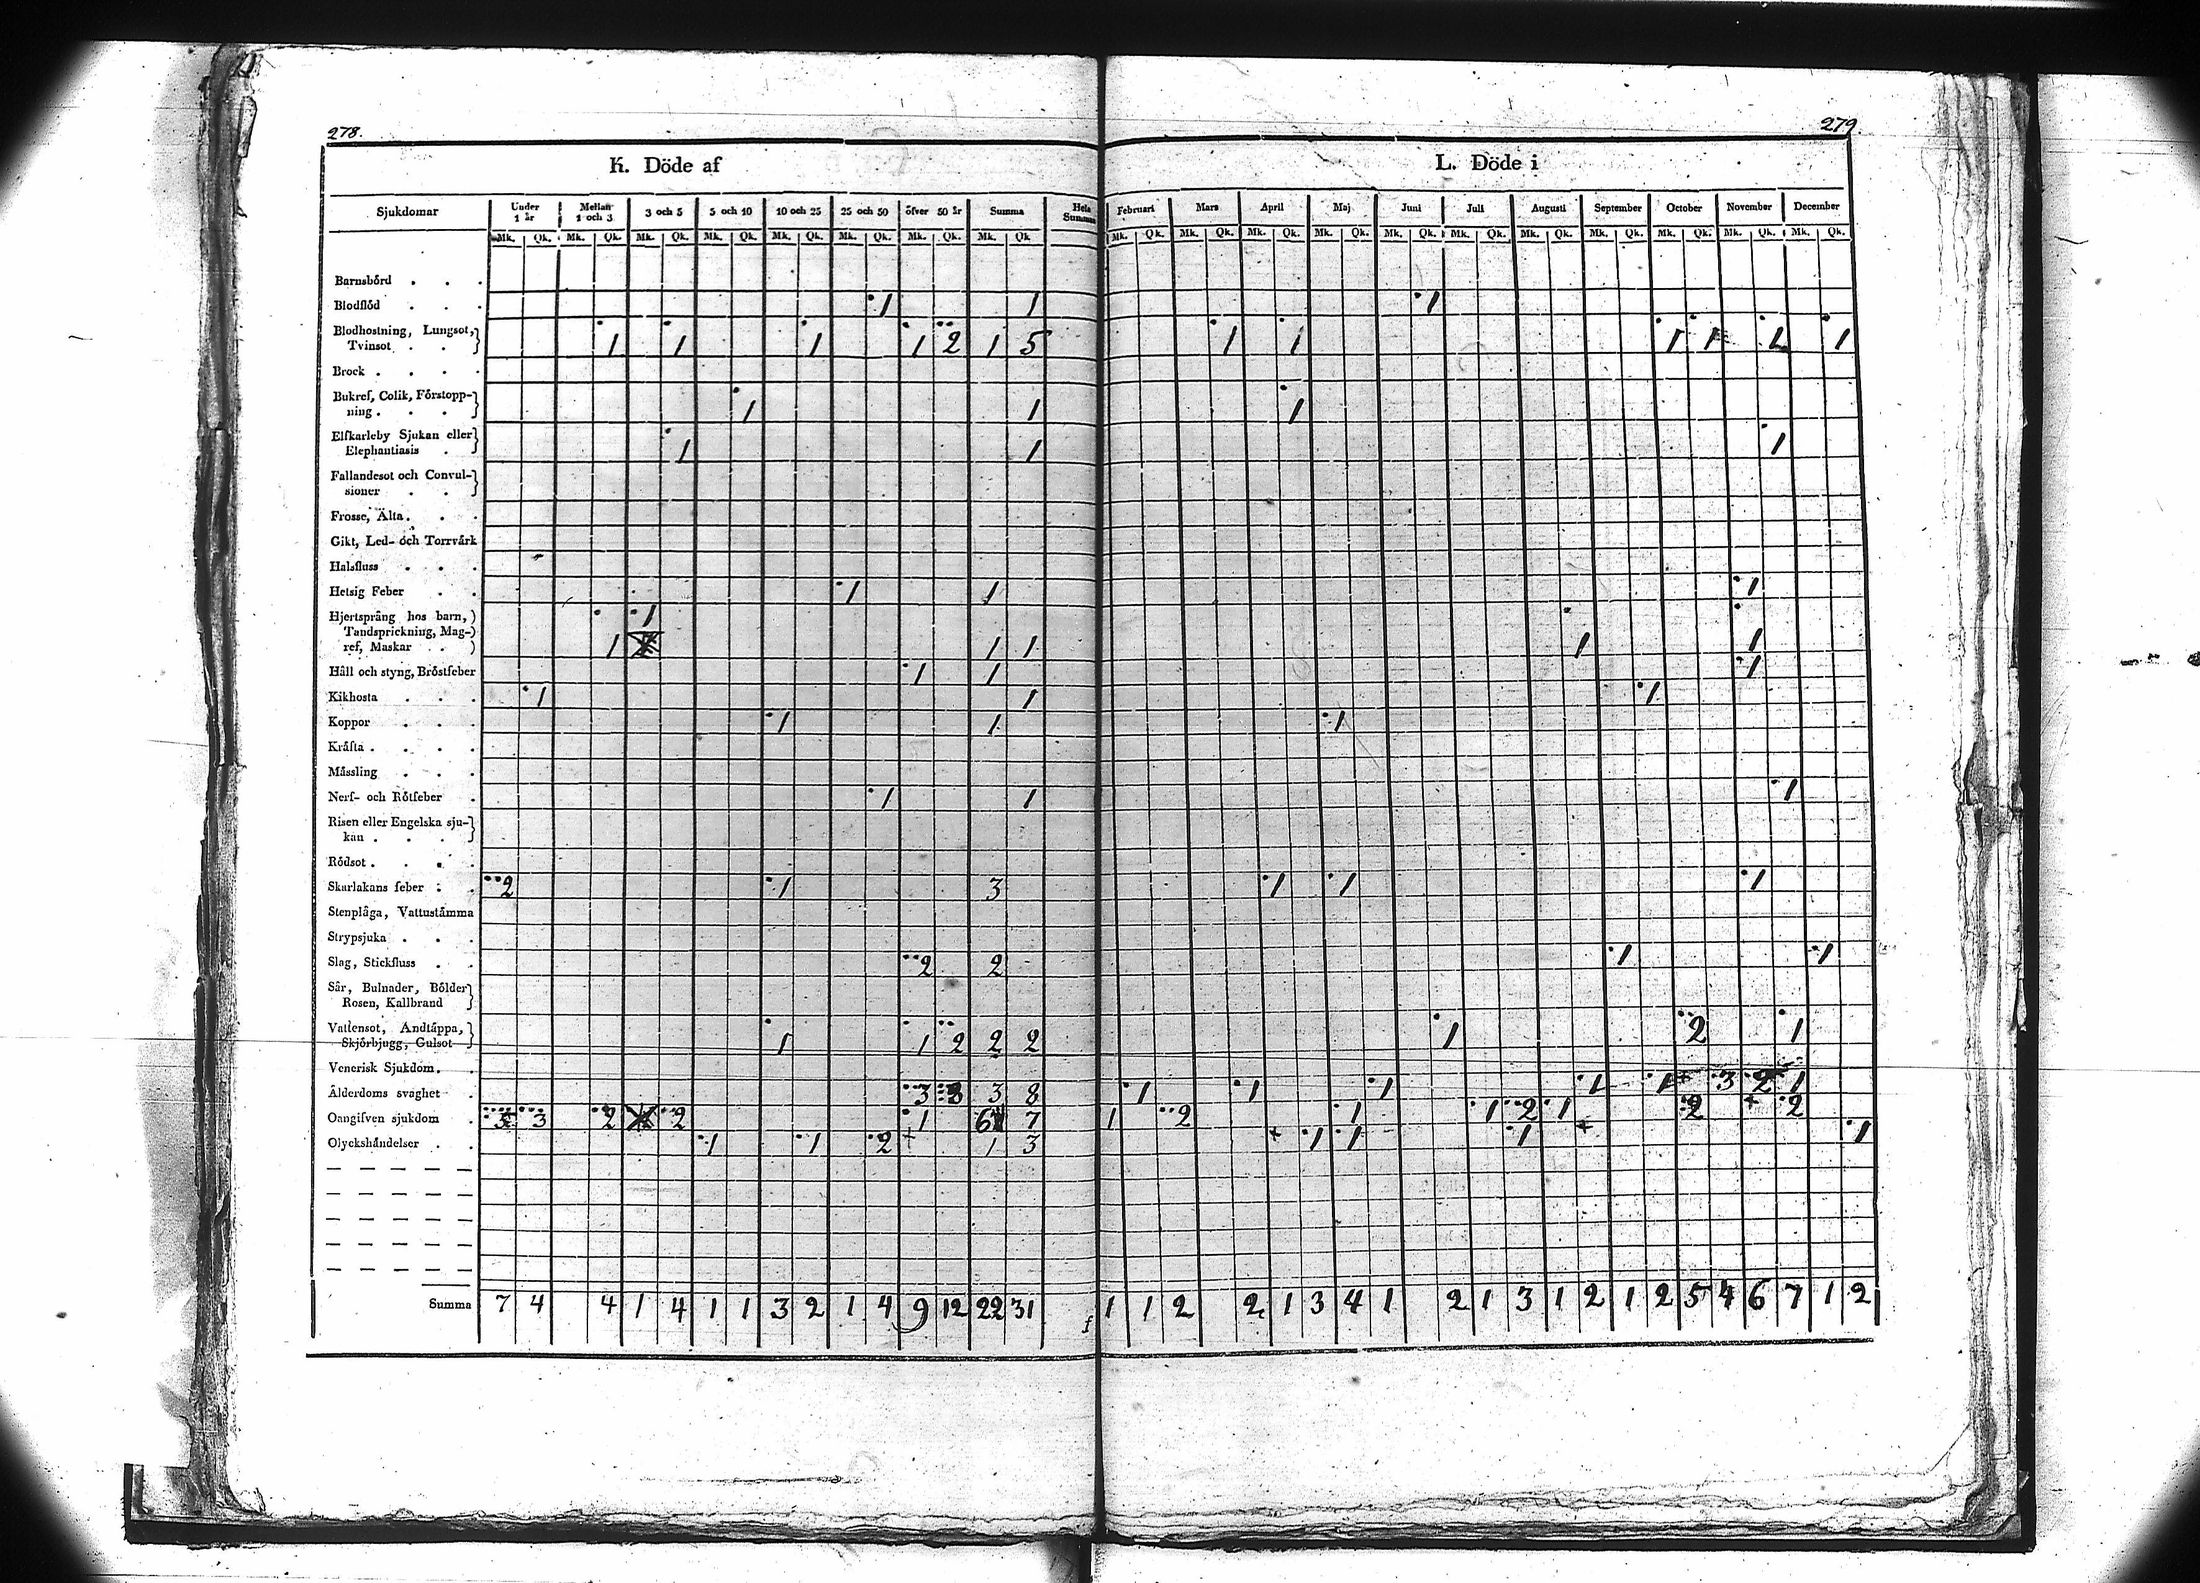 278.
279.
K. Döde af
L. Döde i
Sjukdomar Under 1 år Mellan 1 och 3 3 och 5 5 och 10 10 och 25 25 och 50 öfver 50 år Summa Hela Summan Februari Mars April Maj Juni Juli Augusti September October November December
Mk. Qk. Mk. Qk. Mk. Qk. Mk. Qk. Mk. Qk. Mk. Qk. Mk. Qk. Mk. Qk Mk. Qk. Mk. Qk. Mk. Qk. Mk. Qk. Mk. Qk. Mk. Qk. Mk. Qk. Mk. Qk. Mk. Qk. Mk. Qk. Mk. Qk.
Barnsbörd . . .
Blodflöd . . . 1 1 1
Blodhostning, Lungsot,
Tvinsot . . 1 1 1 1 2 1 5 1 1 1 1 1 1
Brock . . . .
Bukref, Colik, Förstopp-
ning . . . 1 1 1
Elfkarleby Sjukan eller
Elephantiasis . 1 1 1
Fallandesot och Convul-
sioner . .
Frosse, Älta . . .
Gikt, Led- och Torrvärk
Halsfluss . . .
Hetsig Feber . . 1 1 1
Hjertsprång hos barn, 1
Tandsprickning, Mag-
ref, Maskar . . 1 1 1 1 1
Håll och styng, Bröstfeber 1 1 1
Kikhosta . . . 1 1 1
Koppor . . . 1 1 1
Kräfta . . . .
Mässling . . .
Nerf- och Rötfeber . 1 1 1
Risen eller Engelska sju-
kan . . .
Rödsot . . . .
Skarlakans feber . . 2 1 3 1 1 1
Stenplåga, Vattustämma
Strypsjuka . . .
Slag, Stickfluss . . 2 2 1 1
Sår, Bulnader, Bölder
Rosen, Kallbrand
Vattensot, Andtäppa,
Skjörbjugg, Gulsot 1 1 2 2 2 1 2 1
Venerisk Sjukdom . .
Ålderdoms svaghet . 3 8 3 8 1 1 1 1 1 3 2 1
Oangifven sjukdom . 3 3 2 2 1 6 7 1 2 1 1 2 1 2 2
Olyckshändelser . . 1 1 2 + 1 3 + 1 1 1 + 1
Summa 7 4 4 1 4 1 1 3 2 1 4 9 12 22 31 1 1 2 2 1 3 4 1 2 1 3 1 2 1 2 5 4 6 7 1 2